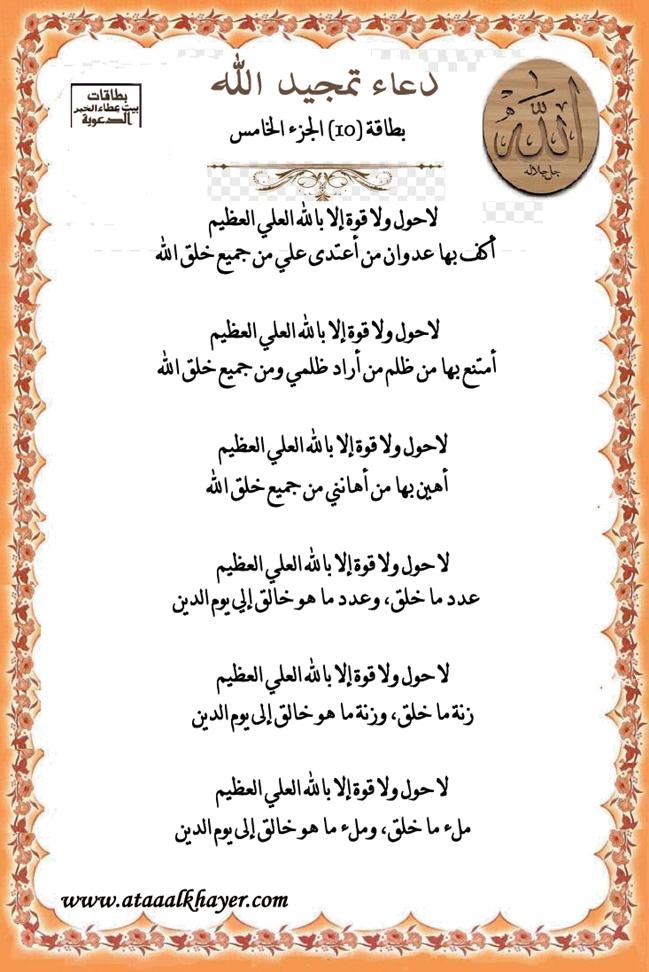 دعاء تمجيد الله
بطاقة (10) الجزء الخامس
بطاقات
بيت عطاء الخير
الدعوية
الله
جل جلاله
لا حول ولا قوة إلا بالله العلي العظيم
أكف بها عدوان من أعتدى علي من جميع خلق الله
لا حول ولا قوة إلا بالله العلي العظيم
أمتنع بها من ظلم من أراد ظلمي ومن جميع خلق الله
لا حول ولا قوة إلا بالله العلي العظيم
أهين بها من أهانني من جميع خلق الله
لا حول ولا قوة إلا بالله العلي العظيم
عدد ما خلق، وعدد ما هو خالق إلي يوم الدين
لا حول ولا قوة إلا بالله العلي العظيم
زنة ما خلق، وزنة ما هو خالق إلى يوم الدين
لا حول ولا قوة إلا بالله العلي العظيم
ملء ما خلق، وملء ما هو خالق إلى يوم الدين
www.ataaalkhayer.com